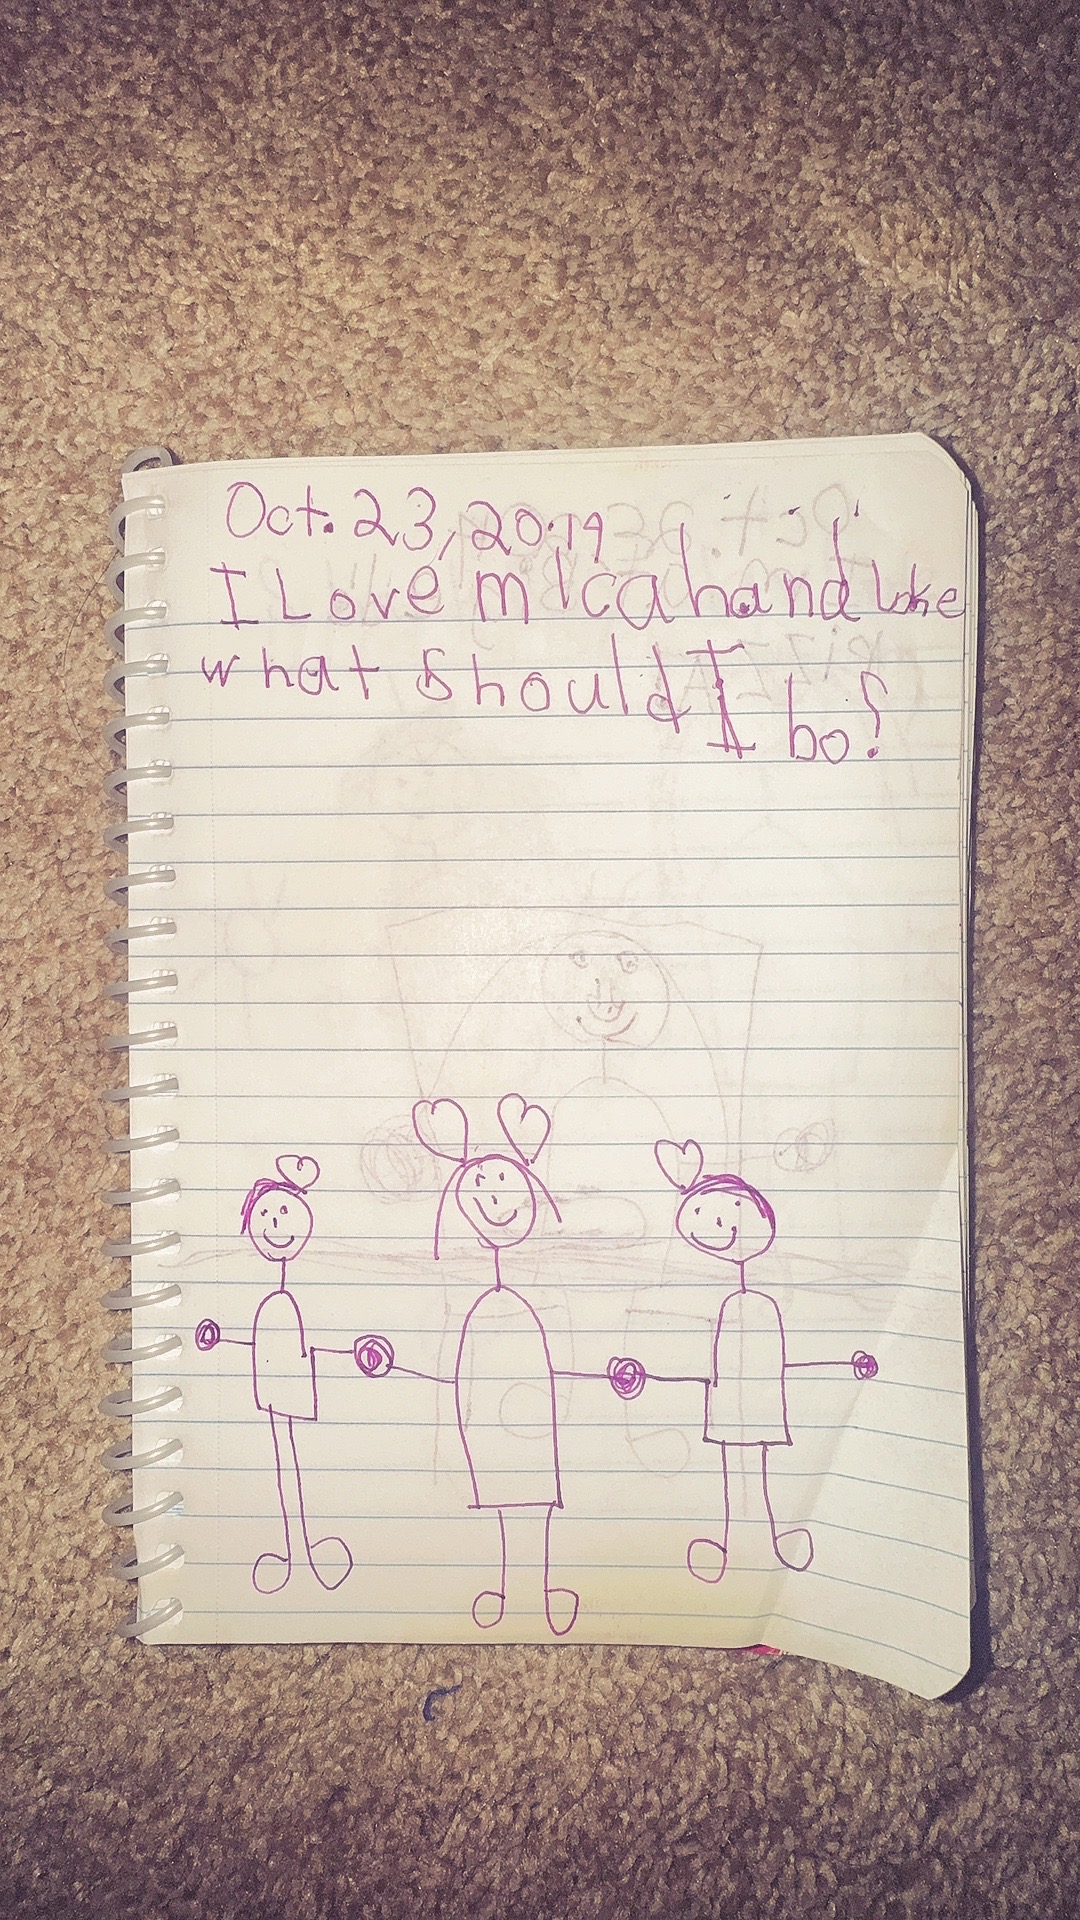 Oct. 23, 2019
I Love micah and Luke
what should I bo?